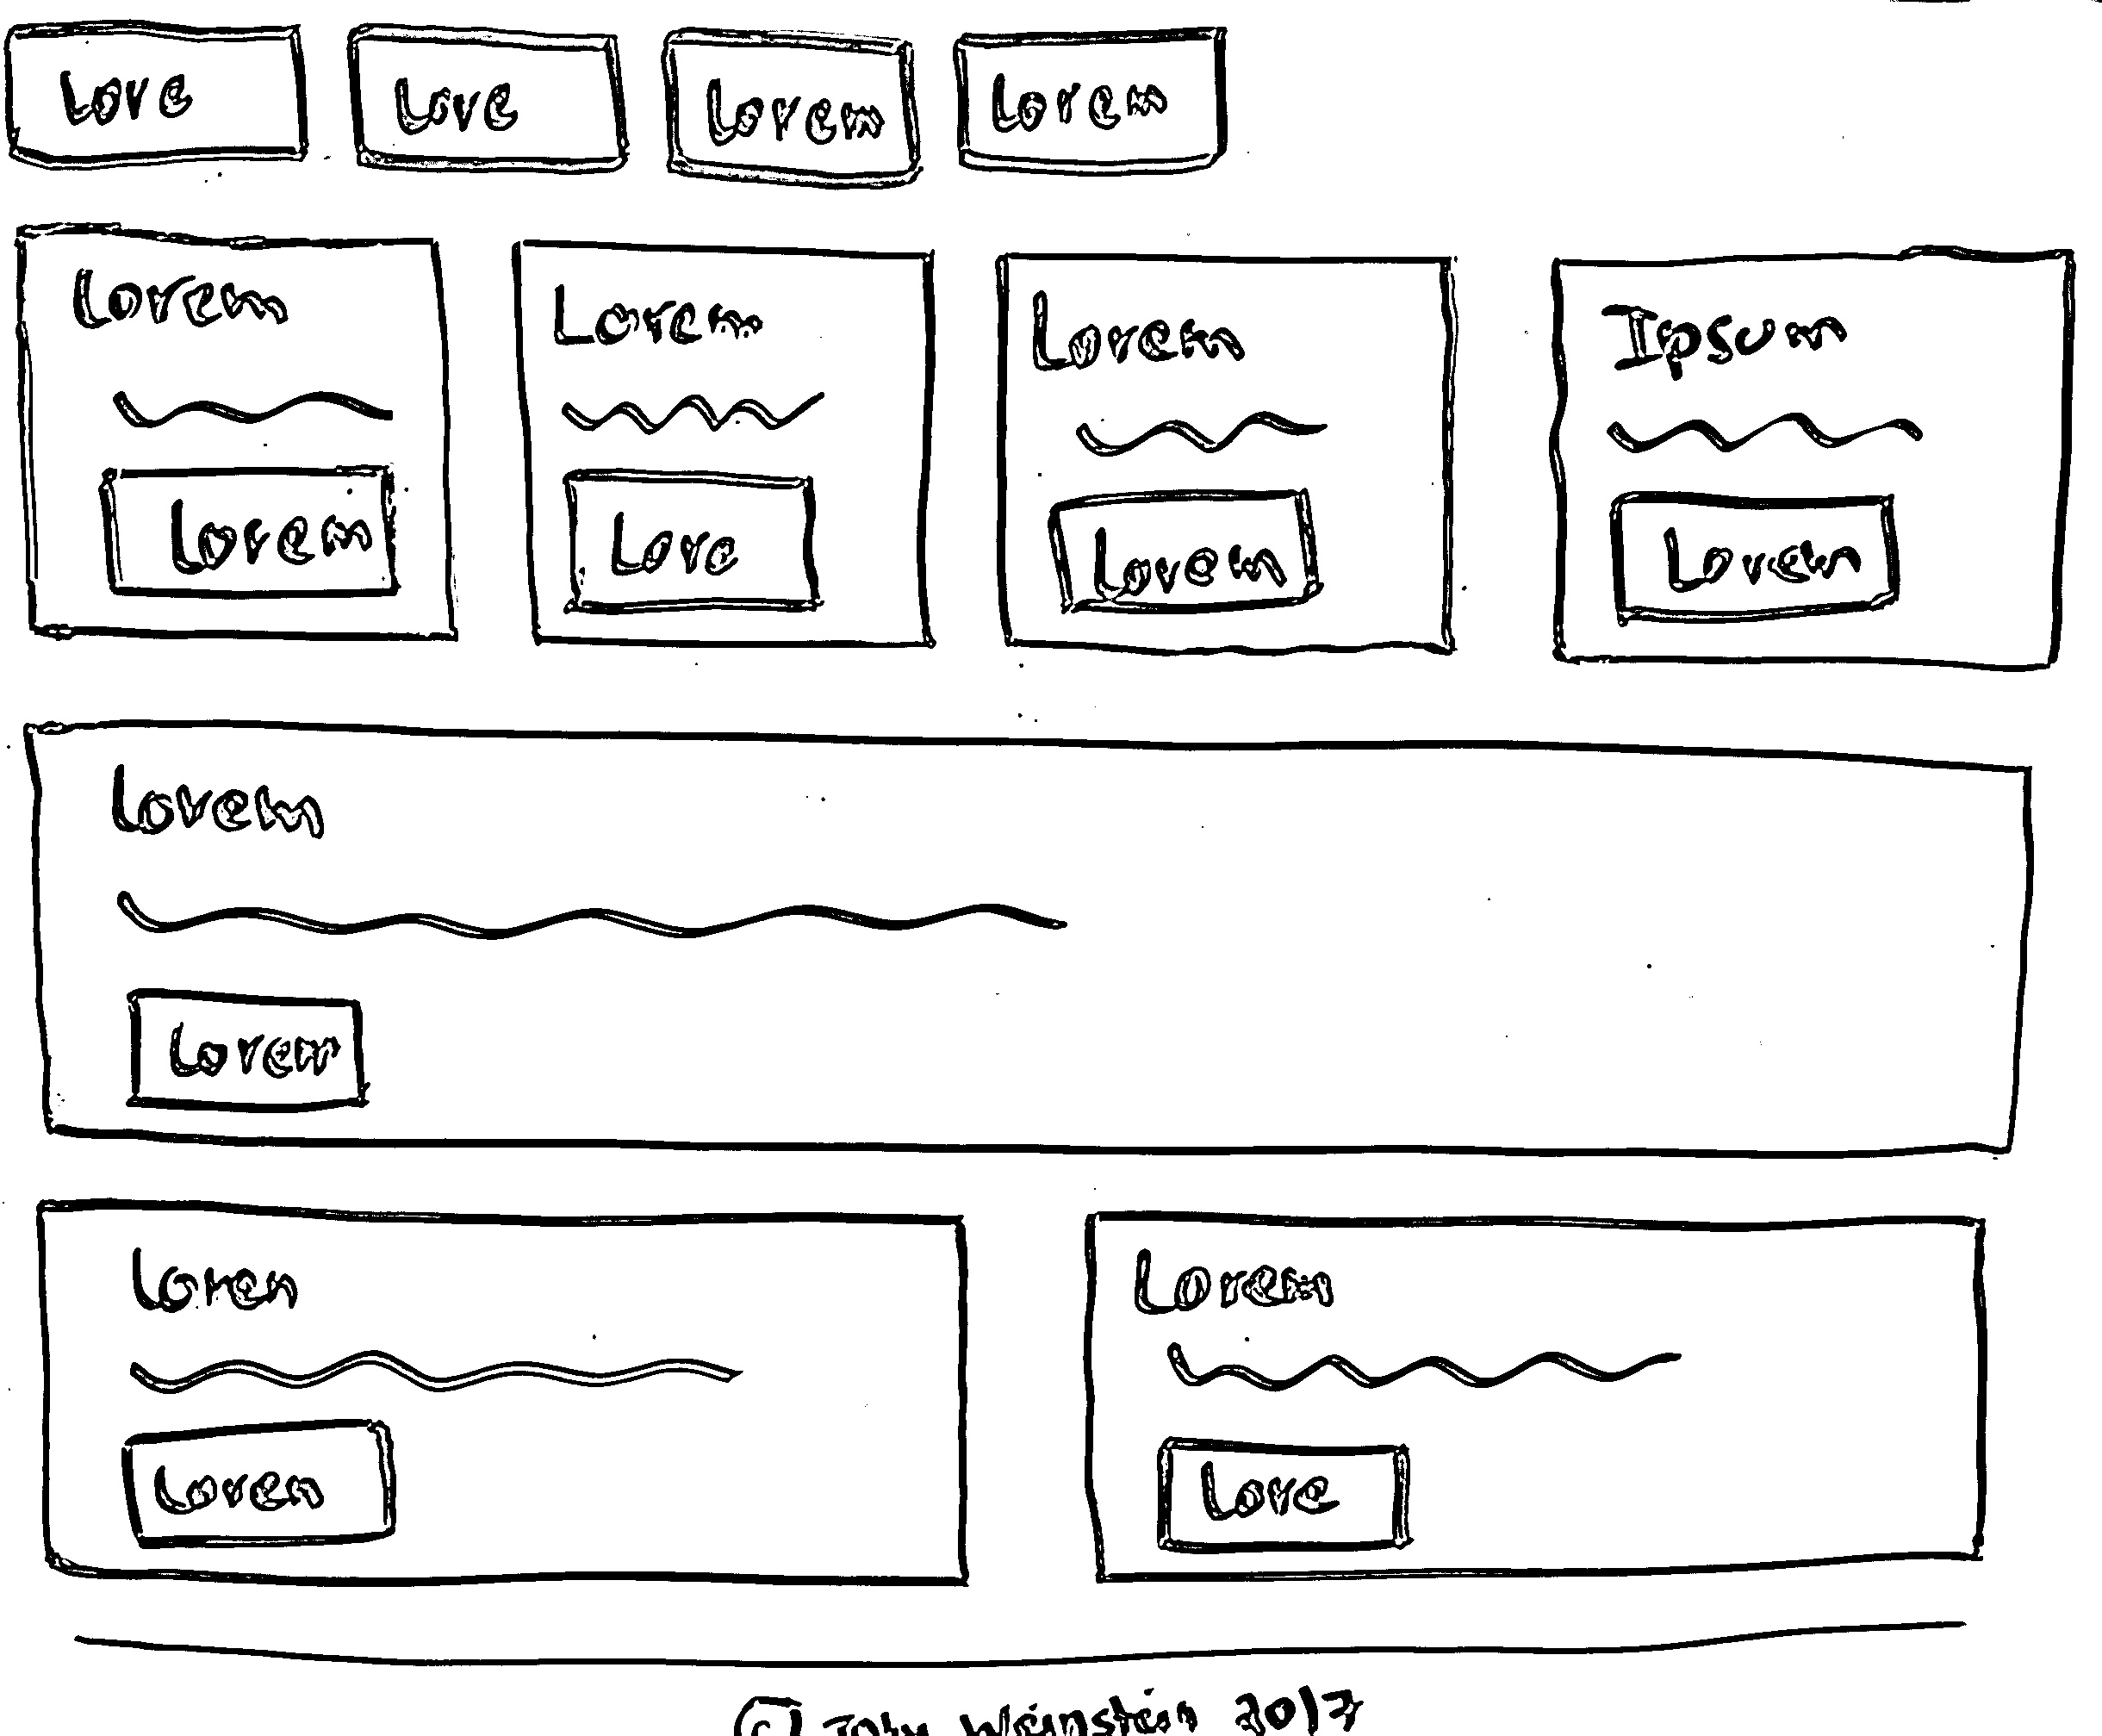 Love Love Lorem Lorem
Lorem Lorem Lorem Ipsum
Lorem Love Lorem Lorem
Lorem
Lorem
Loren Lorem
Loren Love
© John Weinstein 2017